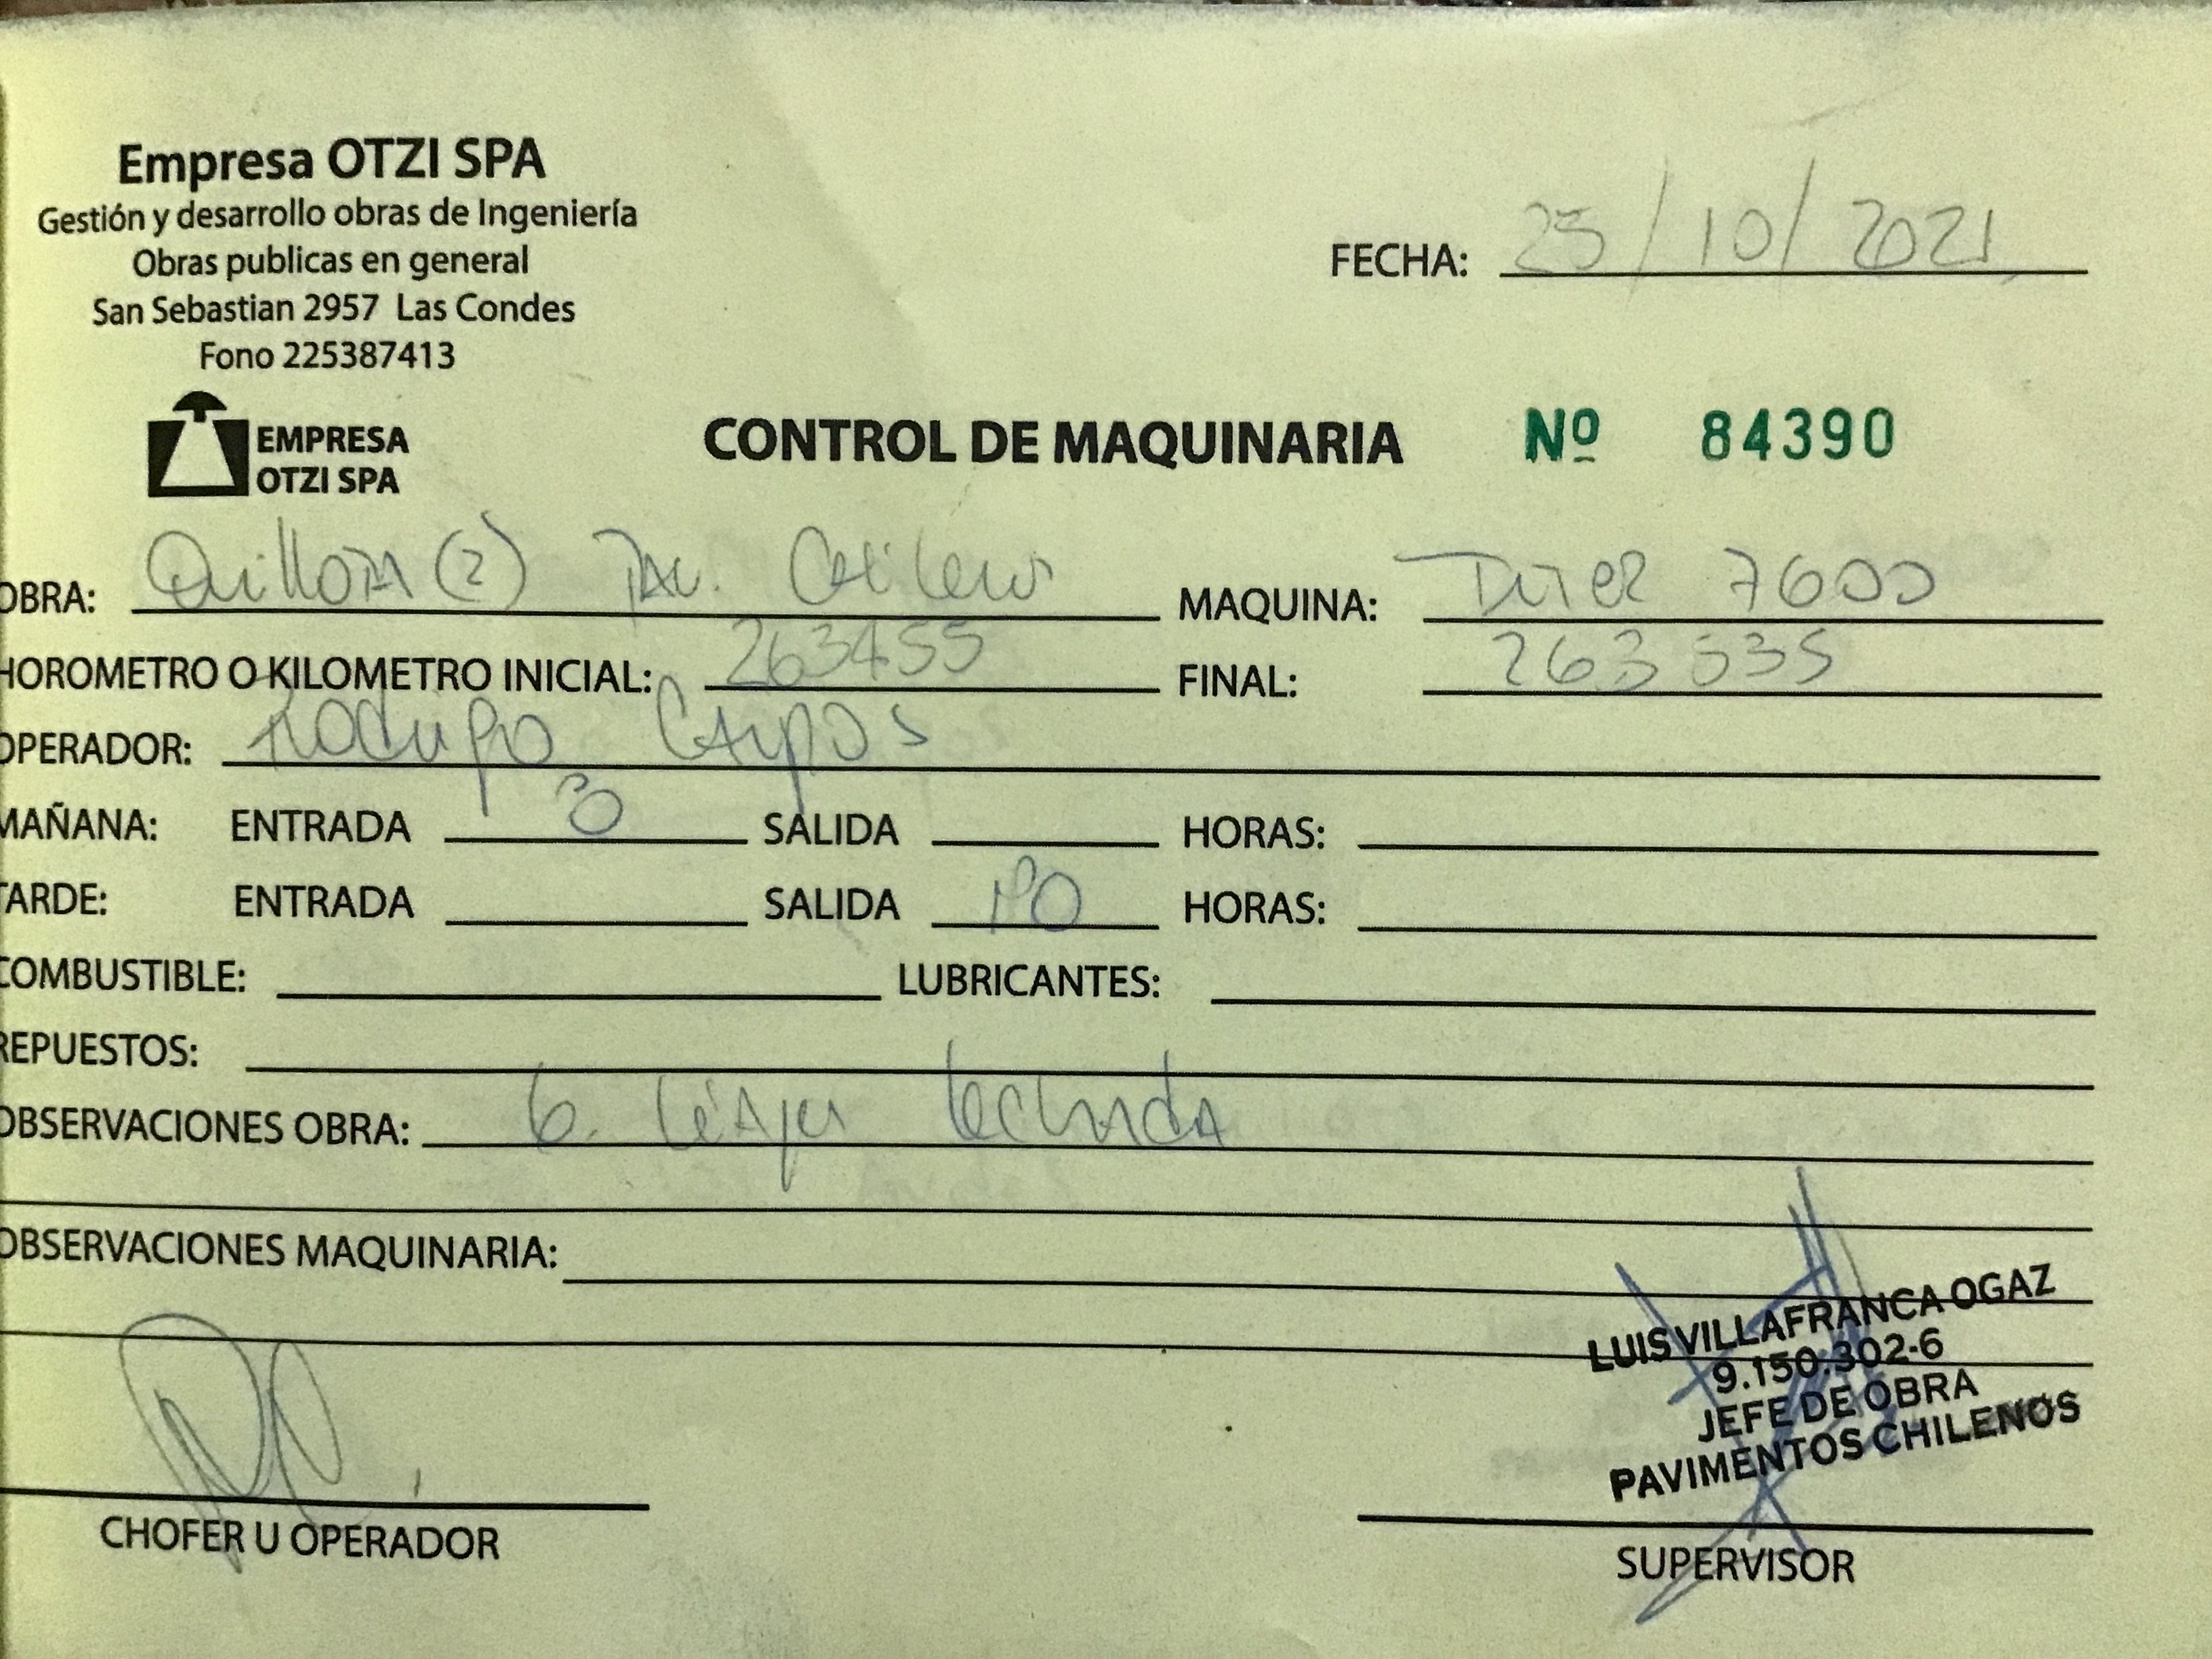 Empresa OTZI SPA
Gestión y desarrollo obras de Ingeniería
Obras publicas en general
San Sebastian 2957 Las Condes
Fono 225387413
FECHA: 25/10/2021
EMPRESA
OTZI SPA
CONTROL DE MAQUINARIA Nº 84390
OBRA: Quillota (2) Pav. Chilenos MAQUINA: 7600
HOROMETRO O KILOMETRO INICIAL: 263455 FINAL: 263535
OPERADOR: Rodrigo Campos
MAÑANA: ENTRADA SALIDA HORAS:
TARDE: ENTRADA SALIDA HORAS:
COMBUSTIBLE: LUBRICANTES:
REPUESTOS:
OBSERVACIONES OBRA: 6
OBSERVACIONES MAQUINARIA:
LUIS VILLAFRANCA OGAZ
9.150.302-6
JEFE DE OBRA
PAVIMENTOS CHILENOS
CHOFER U OPERADOR
SUPERVISOR